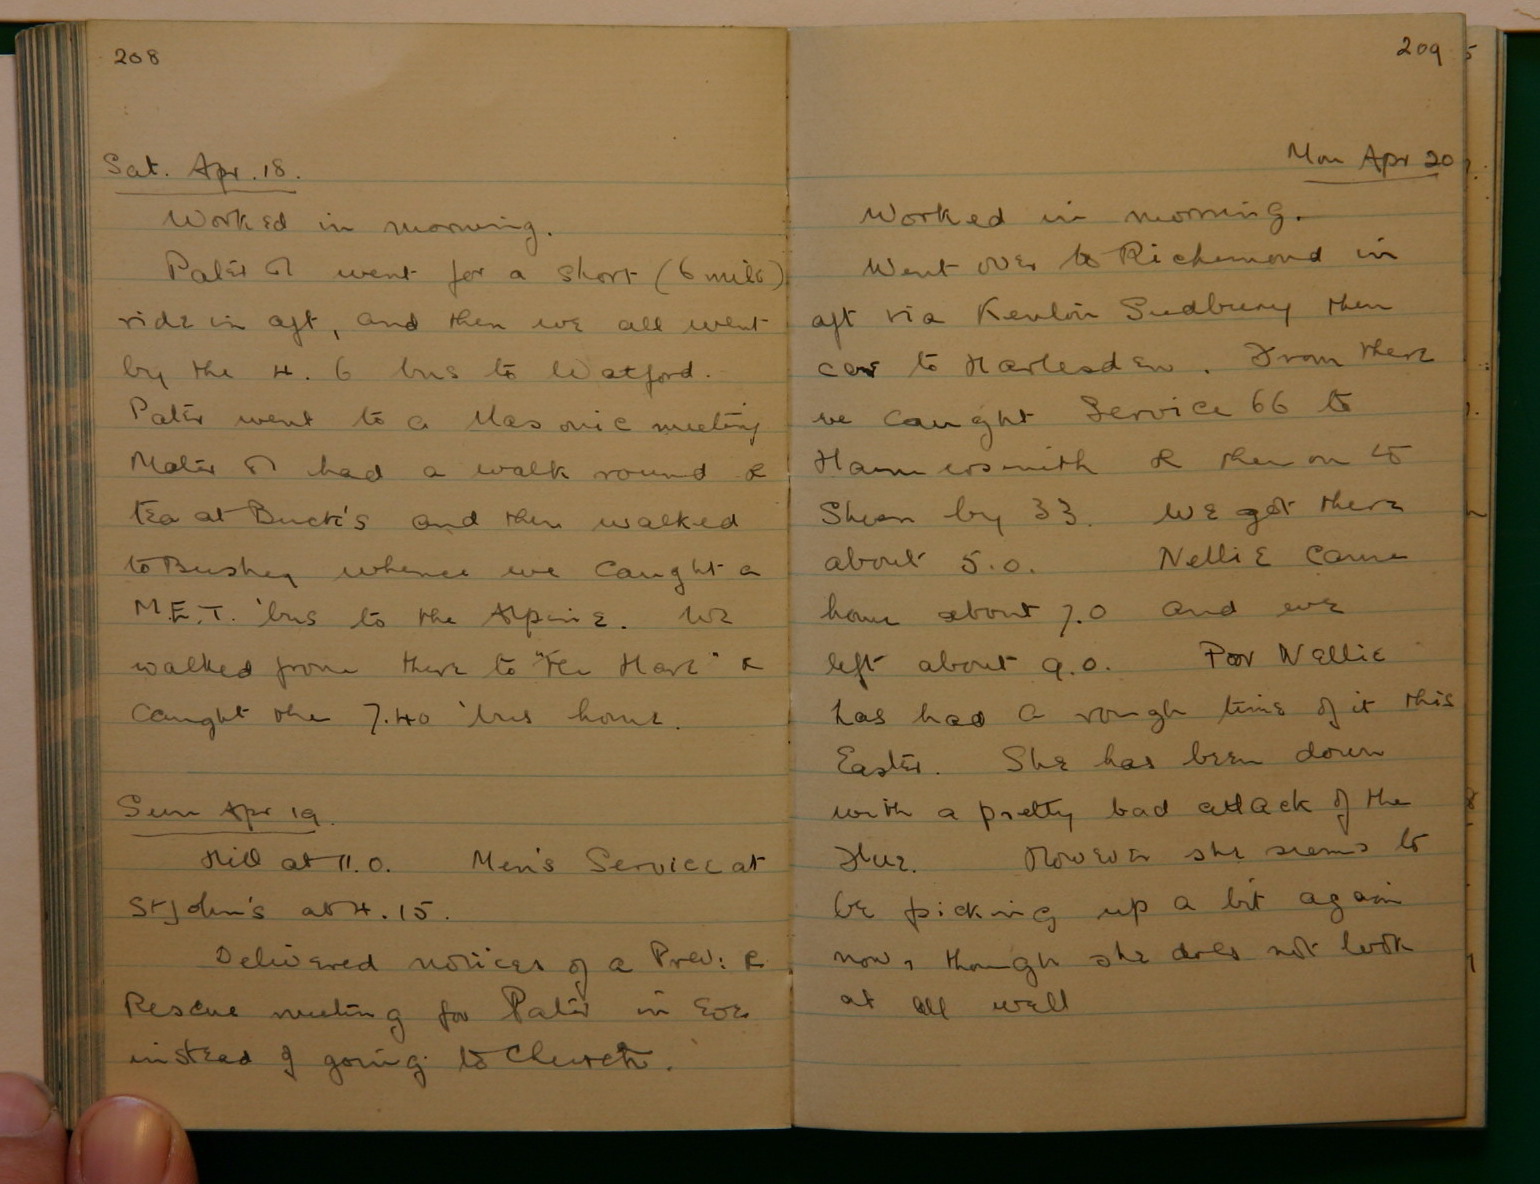 208
Sat. Apr. 18.
Worked in morning.
Pater & I went for a short (6 miles)
ride in aft, and then we all went
by the 4.6 bus to Watford.
Pater went to a Masonic meeting
Mater & I had a walk round &
tea at Buck's and then walked
to Bushey whence we caught a
M.E.T. 'bus to the Alpine. We
walked from there to "The Hare" &
caught the 7.40 'bus home.
Sun Apr 19.
Hill at 11.0. Men's Service at
St John's at 4.15.
Delivered notices of a Prev: &
Rescue meeting for Pater in Eve
instead of going to Church.
209
Mon Apr 20
Worked in morning.
Went over to Richmond in
aft via Kenton Sudbury then
car to Harlesden. From there
we caught Service 66 to
Hammersmith & then on to
Sheen by 33. We got there
about 5.0. Nellie came
home about 7.0 and we
left about 9.0. Poor Nellie
has had a rough time of it this
Easter. She has been down
with a pretty bad attack of the
Flue. However she seems to
be picking up a bit again
now, though she does not look
at all well